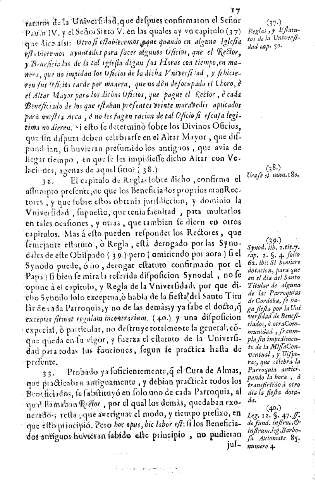 17
tatutos de la Universidad, que despues confirmaron el Señor
Paulo IV. y el Señor Sixto V. en las quales ay vn capitulo (37)
que dice assi: Otrosi establecemos que quando en alguna Iglesia
estuviessemos ayuntados para facer algunos Oficios, que el Retòr,
y Beneficiados de la tal Iglesia digan sus Horas con tiempo, en ma-
nera, que no impidan los Oficios de la dicha Vniversidad, y si hicie-
ren sus Oficios tarde por manera, que non dén desocupado el Choro, è
el Altar Mayor para los dichos Oficios, que pague el Retòr, è cada
Beneficiado de los que estaban presentes veinte maravedis aplicados
para nuestra Arca, è no les fagan racion de tal Oficio si escusa legi-
tima no dieren. si esto se determinò sobre los Divinos Oficios,
que sin disputa deben celebrarse en el Altar Mayor, que dis-
pondrian, si huvieran presumido los antiguos, que avia de
llegar tiempo, en que se les impidiesse dicho Altar con Ve-
laciones, agenas de aquel sitio? (38.)
32. El capitulo de Reglas sobre dicho, confirma el
assumpto presente, no que los Beneficiados propios nombren Rec-
tores, y que sobre ellos obtenia jurisdiccion, y dominio la
Vniversidad, supuesto, que tenia facultad, para multarlos
en tales ocasiones, y otras, que tambien se dicen en otros
capitulos. Mas à esto pueden responder los Rectores, que
semejante estatuto, ò Regla, està derogado por las Syno-
dales de este Obispado (39) pero (omitiendo por aora) si el
Synodo puede, ò no, derogar estatuto confirmado por el
Papa; si bien se mira la referida disposicion Synodal, no se
opone à el capitulo, y Regla de la Vniversidad: por que di-
cho Synodo solo exceptua, ò habla de la fiesta del Santo Titu-
lar de cada Parroquia, y no de las demàs; ya se sabe el docto,
exceptio firmat regulam incontrarium. (40) y una disposicion
especial, ò particular, no destruye totalmente la general, cô-
que queda en su vigor, y fuerza el estatuto de la Vniversi-
dad para todas sus funciones, segun se practica hasta de
presente.
33. Probado ya suficientemente, que el Cura de Almas,
que practicaban antiguamente, y debian practicar todos los
Beneficiados, se substituyò en solo uno de cada Parroquia, al
que llamaban Retòr, por el qual los demàs, quedaban exo-
nerados: resta, que averiguar el modo, y tiempo prefixo, en
que esto principiò. Pero hoc opus, hic labor est: si los Beneficia-
dos antiguos huvieran sabido este principio, no pudieran
jus-
(37.)
Reglas, y Estatu-
tos de la Vniversi-
dad cap. 52.
(38.)
Vease el num. 180.
(39.)
Synod. lib. 2. tit. 7.
cap. 2. §. 4. folio
62. ibi: Si huviere
dotacion, para que
en el dia del Santo
Titular de alguna
de las Parroquias
de Cordoba, se ha-
ga fiesta por la Uni-
versidad de Benefi-
ciados, ò otra Com-
munidad, y fuere sim-
pla sin impedimen-
to de la Missa Con-
ventual, y Visperas,
que celebra la
Parroquia antici-
pando la hora, ò
transfiriendo à otro
dia la fiesta dota-
da.
(40.)
Leg. 12. §. 47. ff.
de fund. instruc. &
instrum. leg. Barbo-
sa Axiomate 85.
numero 4.